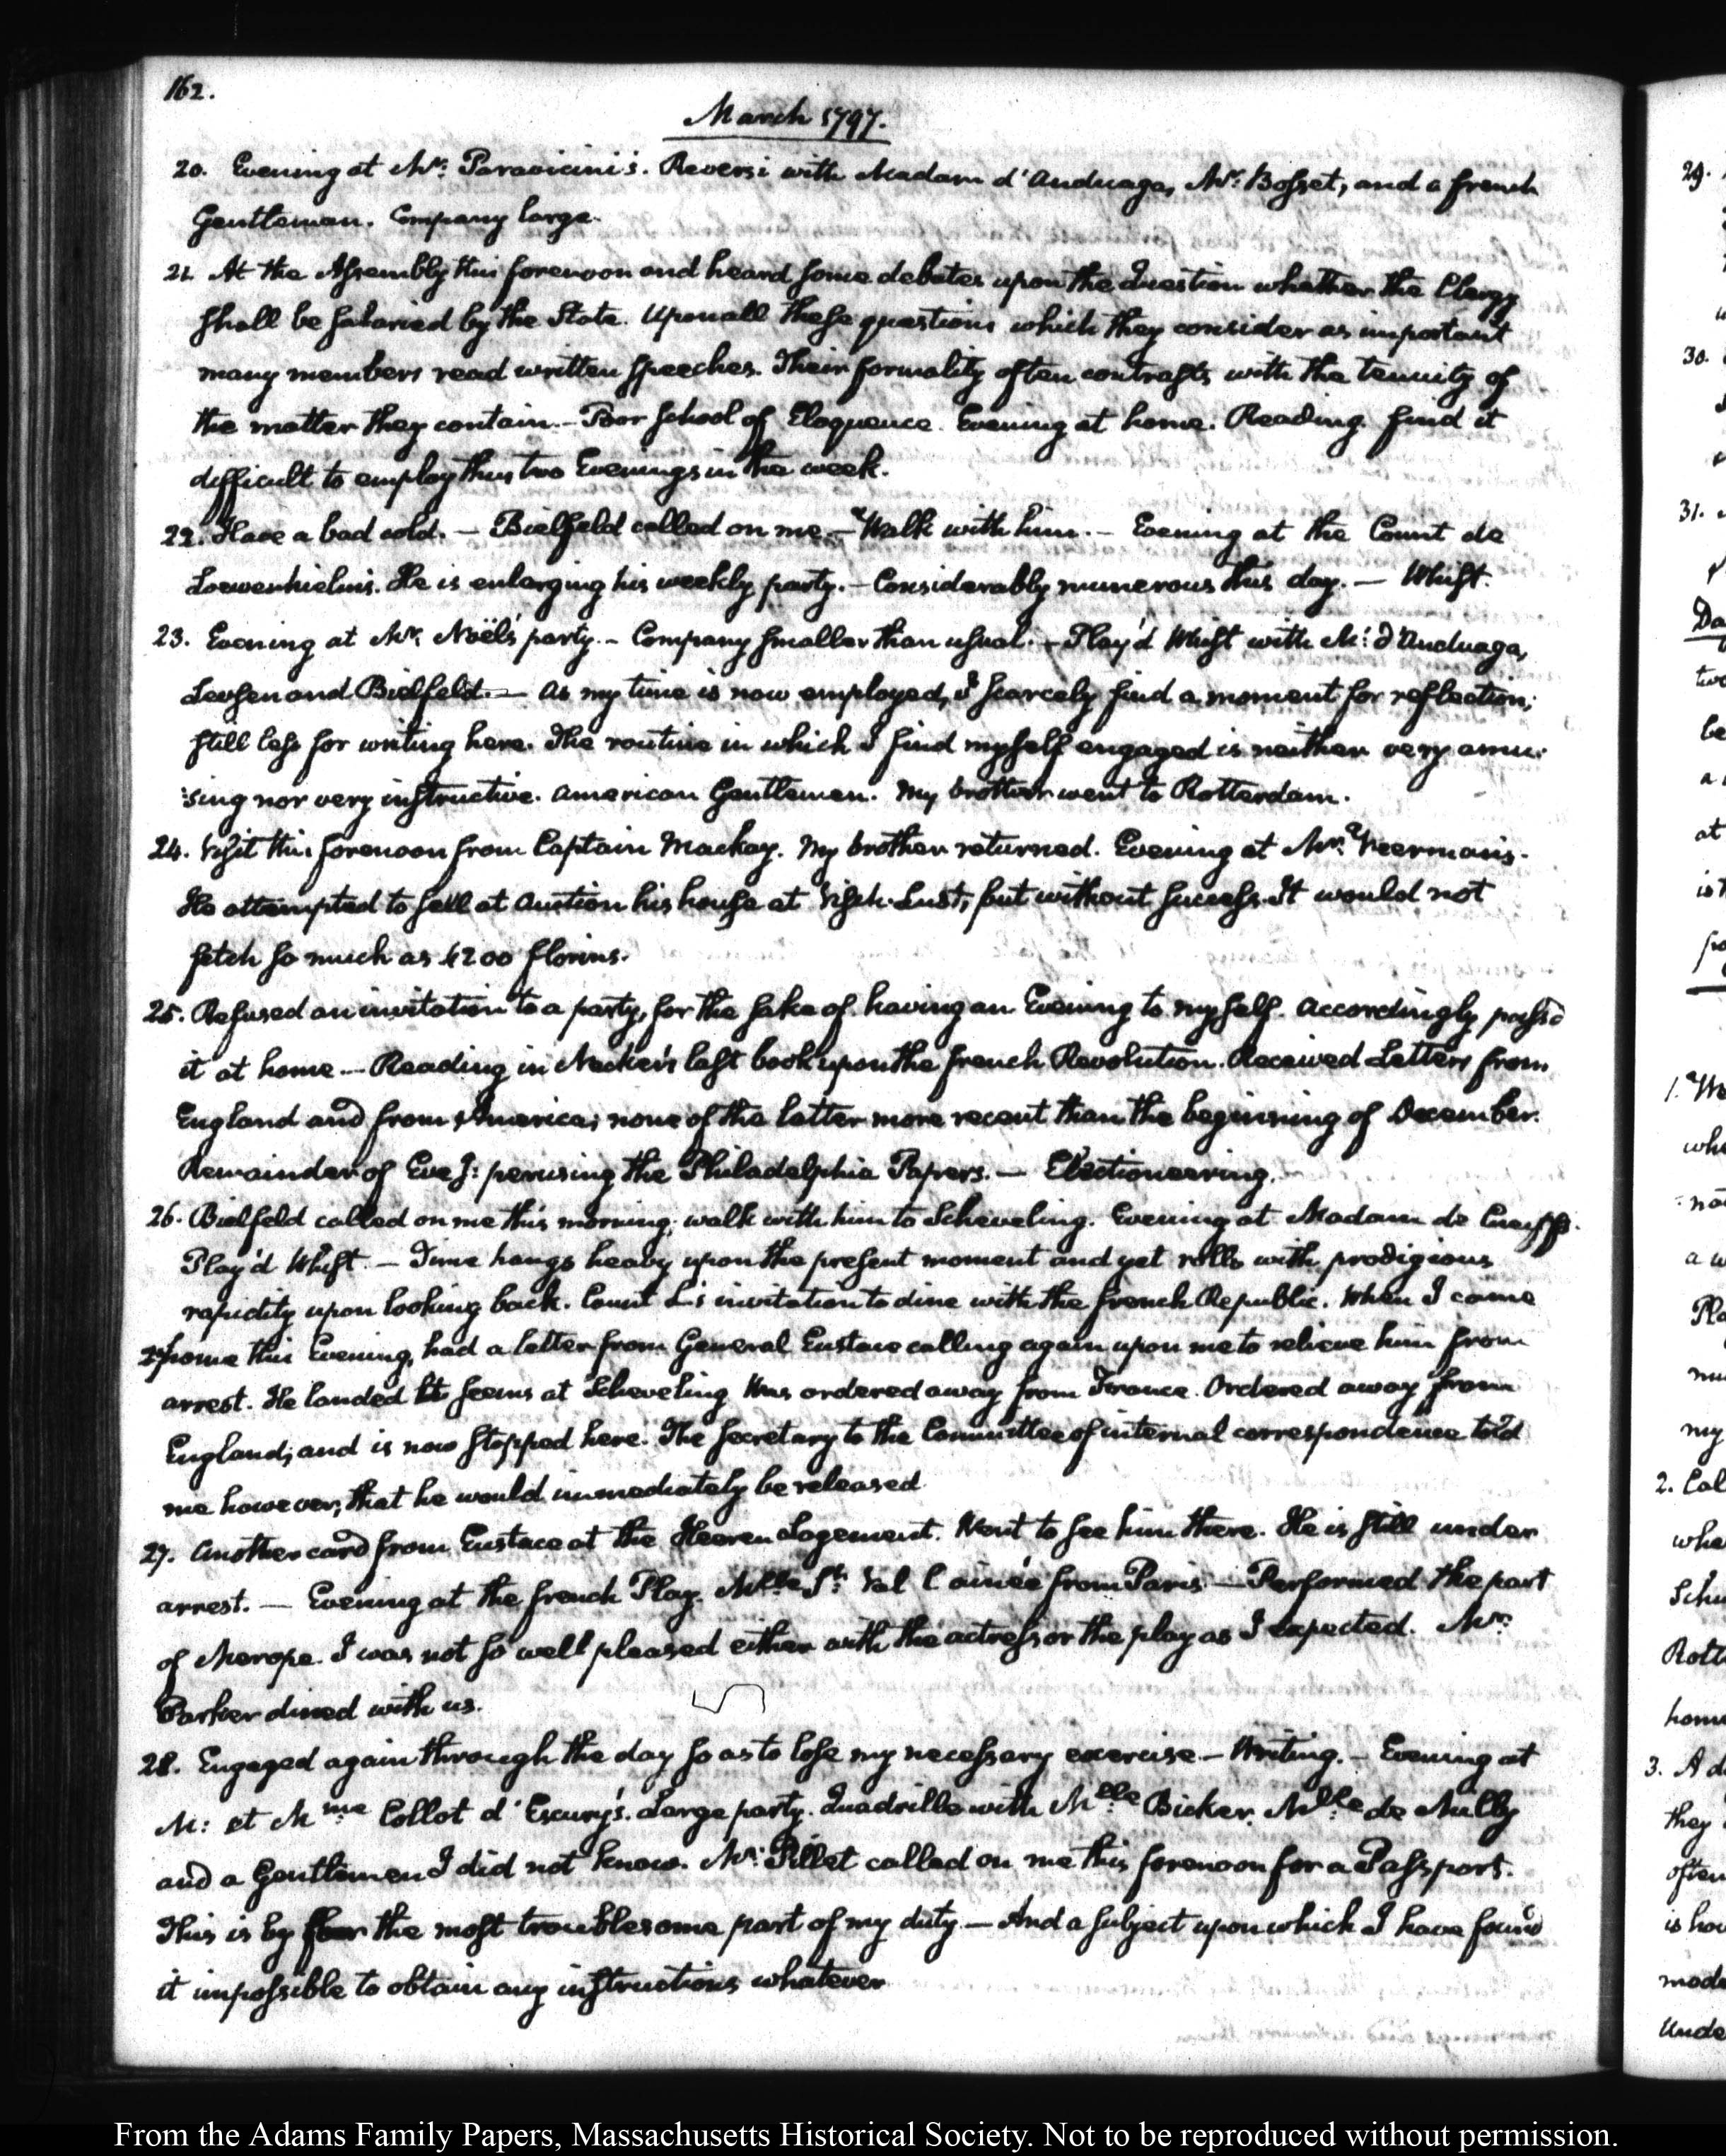 162.
March 1797.
20. Evening at Mr: Paravicini's. Reversi with Madam d'Anduaga, Mr: Bosset, and a french
Gentleman. Company large.
21. At the Assembly this forenoon and heard some debates upon the Question whether the Clergy
shall be salaried by the State. Upon all these questions which they consider as important
many members read written speeches. Their formality often contrasts with the tenuity of
the matter they contain.— Poor school of Eloquence. Evening at home. Reading. find it
difficult to employ thus two Evenings in the week.
22. Have a bad cold.— Bielfeld called on me.— Walk with him.— Evening at the Count de
Loewenhielm's. He is enlarging his weekly party.— Considerably numerous this day.— Whist.
23. Evening at Mr. Noël's party.— Company smaller than usual.— Play'd Whist with M: d'Anduaga,
Levsen and Bielfeld.— As my time is now employed, I scarcely find a moment for reflection;
still less for writing here. The routine in which I find myself engaged is neither very amu:
:sing nor very instructive. American Gentlemen. My brother went to Rotterdam.
24. Visit this forenoon from Captain Mackay. My brother returned. Evening at Mr: Veerman's.
He attempted to sell at Auction his house at Vijch-Lust, but without success. It would not
fetch so much as 4200 florins.
25. Refused an invitation to a party, for the sake of having an Evening to myself. Accordingly pass'd
it at home.— Reading in Necker's last book upon the french Revolution. Received Letters from
England and from America; none of the latter more recent than the beginning of December.
Remainder of Eveg: perusing the Philadelphia Papers.— Electioneering.
26. Bielfeld called on me this morning; walk with him to Scheveling. Evening at Madam de
Play'd Whist.— Time hangs heavy upon the present moment and yet rolls with prodigious
rapidity upon looking back. Count L's invitation to dine with the french Republic. When I came
home this Evening, had a letter from General Eustace calling again upon me to relieve him from
arrest. He landed it seems at Scheveling. Was ordered away from France. Ordered away from
England; and is now stopped here. The Secretary to the Committee of internal correspondence told
me however, that he would immediately be released
27. Another card from Eustace at the Heeren Logement. Went to see him there. He is still under
arrest.— Evening at the french Play. Mlle St: Val l'ainée from Paris— Performed the part
of Merope. I was not so well pleased either with the actress or the play as I expected. Mr:
Parker dined with us.
28. Engaged again through the day so as to lose my necessary exercise— Writing.— Evening at
M: et Mme Collot d'Escury's. Large party. Quadrille with Mlle Bicker, Mlle de Nully
and a Gentlemen I did not know. Mr: Pillet called on me this forenoon for a Passport.
This is by far the most troublesome part of my duty.— And a subject upon which I have found
it impossible to obtain any instructions whatever
29.
30.
31.
Da
1. We
2. Cal
3. A d
From the Adams Family Papers, Massachusetts Historical Society. Not to be reproduced without permission.